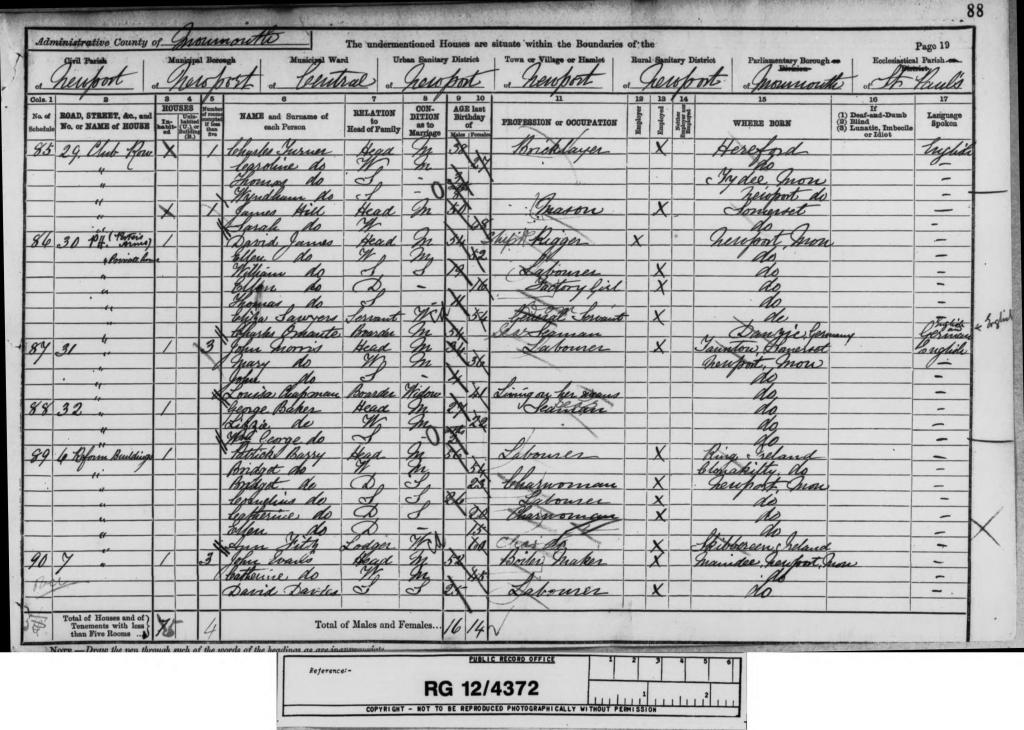 88
Administrative County of Monmouth The undermentioned Houses are situate within the Boundaries of the Page 19
Civil Parish Municipal Borough Municipal Ward Urban Sanitary District Town or Village or Hamlet Rural Sanitary District Parliamentary Borough or Division Ecclesiastical Parish or District
of Newport of Newport of Central of Newport of Newport of Newport of Monmouth of St. Paul's
Cols. 1 2 3 4 5 6 7 8 9 10 11 12 13 14 15 16 17
No. of Schedule ROAD, STREET, &c., and No. or NAME of HOUSE HOUSES Inhabited Uninhabited (U.) or Building (B.) Number of rooms occupied if less than five NAME and Surname of each Person RELATION to Head of Family CONDITION as to Marriage AGE last Birthday of Males Females PROFESSION or OCCUPATION Employer Employed Neither Employer nor Employed WHERE BORN If (1) Deaf-and-Dumb (2) Blind (3) Lunatic, Imbecile or Idiot Language Spoken
85 29, Club Row X 1 Charles Turner Head M 38 Bricklayer X Hereford English
" Caroline do W M 27 do —
" Thomas do S — Tydee Mon —
" Wyndham do S — Newport do —
" X 1 James Hill Head M 40 Mason X Somerset —
" Sarah do W 38 do —
86 30 P.H. (Porters Arms) 1 David James Head M 54 Ship Rigger X Newport, Mon —
" Private house Ellen do W M 52 do —
" William do S S 19 Labourer X do —
" Ellen do D — 16 Factory Girl X do —
" Thomas do S — 11 do —
" Eliza Sawyers Servant Wid 54 General Servant X do —
" Charles Boarder M 54 Seaman Danzic, Germany English and German English
87 31 " 1 3 John Morris Head M Labourer X Taunton, Somerset English
" Mary do W M 36 Newport, Mon —
" John do S — 4 do —
" Louisa Chapman Boarder Widow 41 Living on her means do —
88 32 " 1 George Baker Head M 27 Seaman do —
" Lizzie do W M 22 do —
" George do S — do —
89 6 Reform Buildings 1 Patrick Barry Head M 56 Labourer X Ireland —
" Bridget do W M 54 Clonakilty, do —
" Bridget do D S 23 Charwoman X Newport, Mon —
" Cornelius do S S 26 Labourer X do —
" Catherine do D S 20 Charwoman X do —
" Ellen do D — 15 do —
" Ann Fitz Lodger Wid 60 Char do X Skibbereen, Ireland —
90 7 " 1 3 John Evans Head M 52 Boiler Maker X Maindee, Newport, Mon —
" Catherine do W M 45 do —
" David Davies S S 25 Labourer X do —
Total of Houses and of Tenements with less than Five Rooms 5 4 Total of Males and Females... 16 14
NOTE.—Draw the pen through such of the words of the headings as are inappropriate.
PUBLIC RECORD OFFICE
Reference:-
1 2 3 4 5 6
RG 12/4372
1 2
COPYRIGHT - NOT TO BE REPRODUCED PHOTOGRAPHICALLY WITHOUT PERMISSION